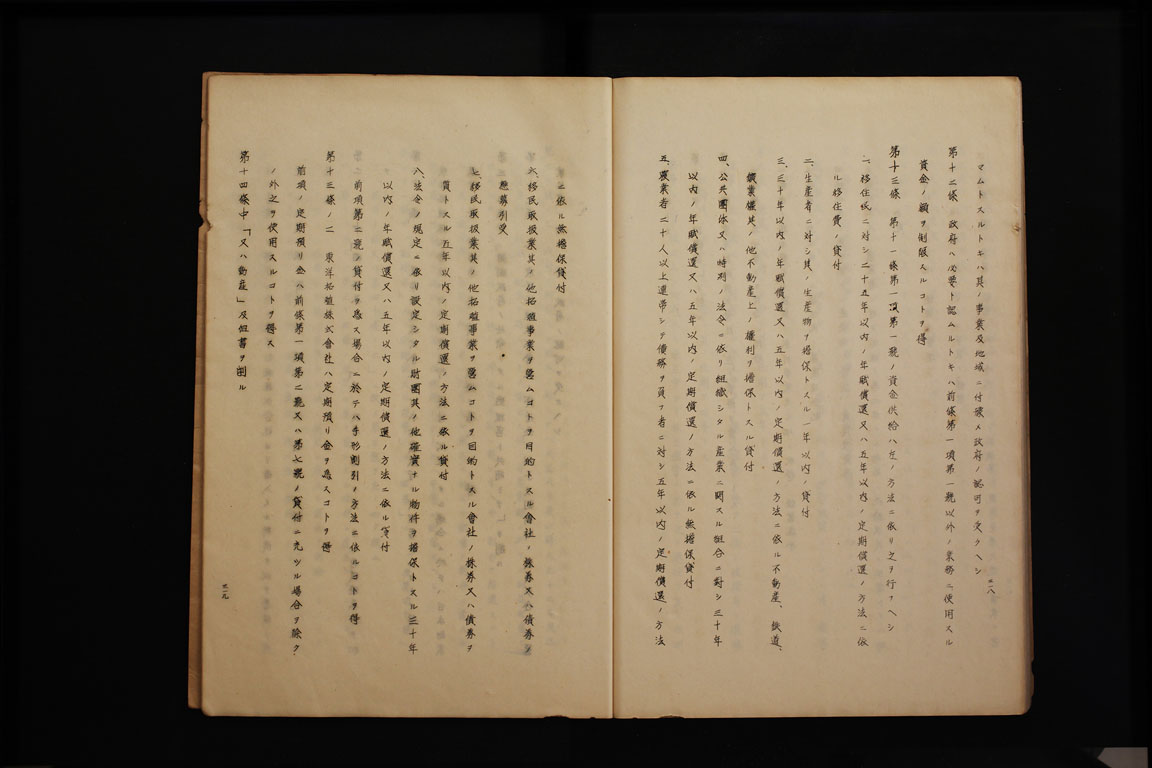 マムトスルトキハ其ノ事業及地域ニ付豫メ政府ノ認可ヲ受クヘシ
第十二條 政府ハ必要ト認ムルトキハ前條第一項第一號以外ノ業務ニ使用スル
資金ノ額ヲ制限スルコトヲ得
第十三條 第十一條第一項第一號ノ資金供給ハ左ノ方法ニ依リ之ヲ行フヘシ
一、移住民ニ対シ二十五年以内ノ年賦償還又ハ五年以内ノ定期償還ノ方法ニ依
ル移住費ノ貸付
二、生産者ニ対シ其ノ生産物ヲ擔保トスル一年以内ノ貸付
三、三十年以内ノ年賦償還又ハ五年以内ノ定期償還ノ方法ニ依ル不動産、鉄道、
鑛業權其ノ他不動産上ノ權利ヲ擔保トスル貸付
四、公共團体又ハ特別ノ法令ニ依リ組織シタル産業ニ関スル組合ニ對シ三十年
以内ノ年賦償還又ハ五年以内ノ定期償還ノ方法ニ依ル無擔保貸付
五、農業者二十人以上連帯シテ債務ヲ負フ者ニ対シ五年以内ノ定期償還ノ方法
二八
ニ依ル無擔保貸付
六、移民取扱業其ノ他拓殖事業ヲ營ムコトヲ目的トスル會社ノ株券又ハ債券ノ
應募引受
七、移民取扱業其ノ他拓殖事業ヲ營ムコトヲ目的トスル會社ノ株券又ハ債券ヲ
質トスル五年以内ノ定期償還ノ方法ニ依ル貸付
八、法令ノ規定ニ依リ設定シタル財團其ノ他確實ナル物件ヲ擔保トスル三十年
以内ノ年賦償還又ハ五年以内ノ定期償還ノ方法ニ依ル貸付
前項第二號ノ貸付ヲ為ス場合ニ於テハ手形割引ノ方法ニ依ルコトヲ得
第十三條ノ二 東洋拓殖株式會社ハ定期預リ金ヲ為スコトヲ得
前項ノ定期預リ金ハ前條第一項第二號又ハ第七號ノ貸付ニ充ツル場合ヲ除ク
ノ外之ヲ使用スルコトヲ得ス
第十四條中「又ハ動産」及但書ヲ削ル
二九